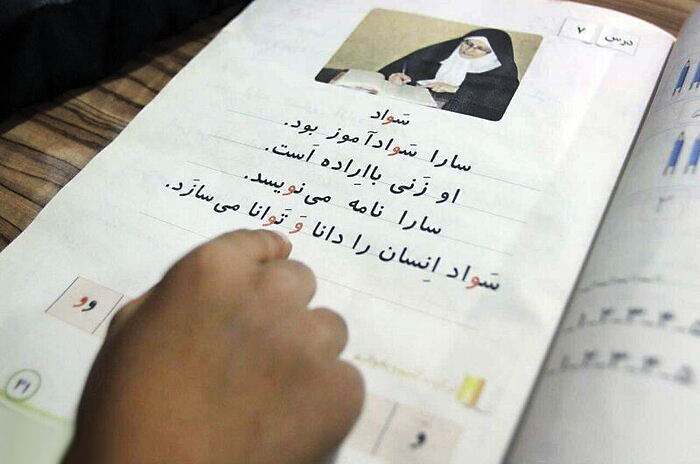 درس ۷
سَواد
سارا سَوادآموز بود.
او زَنی بااِراده اَست.
سارا نامه می‌نویسد.
سَواد اِنسان را دانا وَ تَوانا می‌سازَد.
و و
وَ
۳۱
۱ ۲ ۳ ۴ ۵
۱ ۲ ۳ ۴ ۵